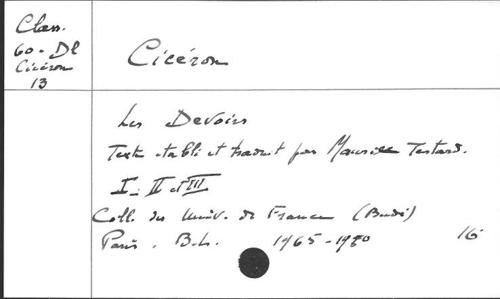 Class.
60 - Dl
Cicéron
13
Cicéron
Les Devoirs
Texte établi et traduit par Maurice Testard.
I - II et III
Coll. des Univ. de France (Budé)
Paris. B.L. 1965-1970 16